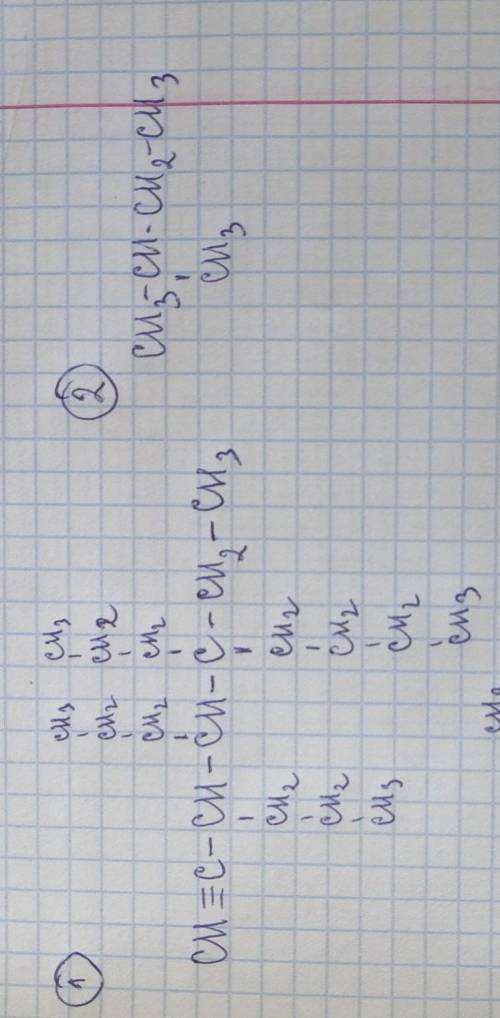 ①
CH₃ CH₃
CH₂ CH₂
CH₂ CH₂
CH≡C-CH-CH-C-CH₂-CH₃
CH₂ CH₂
CH₂ CH₂
CH₃ CH₂
CH₃
②
CH₃-CH-CH₂-CH₃
CH₃